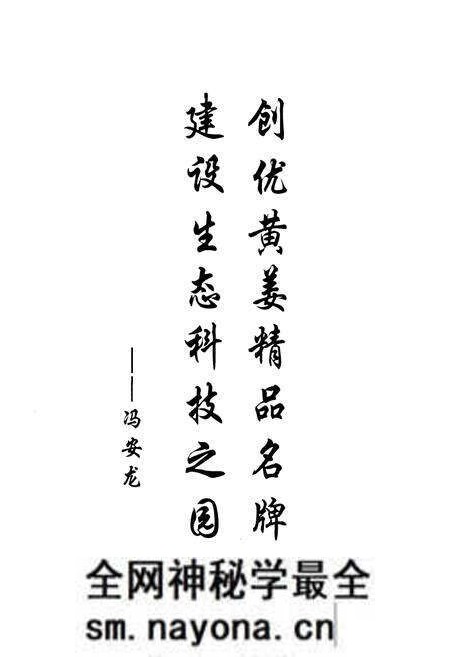 创优黄姜精品名牌
建设生态科技之园
——冯安龙
全网神秘学最全
sm.nayona.cn